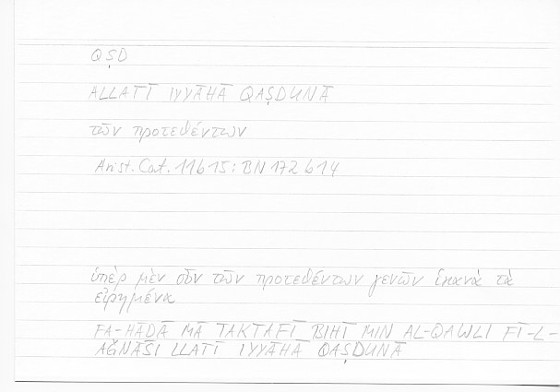 QṢD
ALLATĪ IYYĀHĀ QAṢDUNĀ
τῶν προτεθέντων
Arist. Cat. 11b15: BN 172b14
ὑπὲρ μὲν οὖν τῶν προτεθέντων γενῶν ἱκανὰ τὰ
εἰρημένα
FA-HĀḎĀ MĀ TAKTAFĪ BIHĪ MIN AL-QAWLI FĪ-L-
AĞNĀSI LLATĪ IYYĀHĀ QAṢDUNĀ